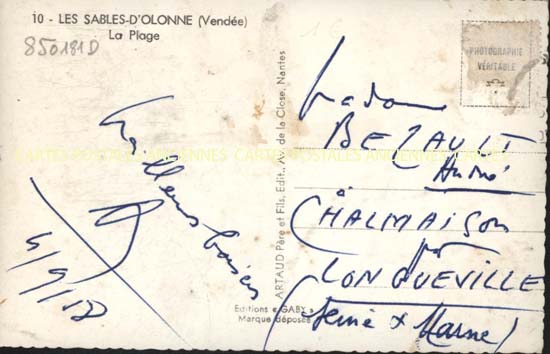 10 - LES SABLES-D'OLONNE (Vendée)
La Plage
850181D
Meilleurs baisers
ARTAUD Père et Fils, Edit., Av. de la Close, Nantes
Editions « GABY »
Marque déposée
PHOTOGRAPHIE
VÉRITABLE
Madame
BEZAULT
André
à
CHALMAISON
par
LONGUEVILLE
(Seine & Marne)
CARTES POSTALES ANCIENNES CARTES POSTALES ANCIENNES